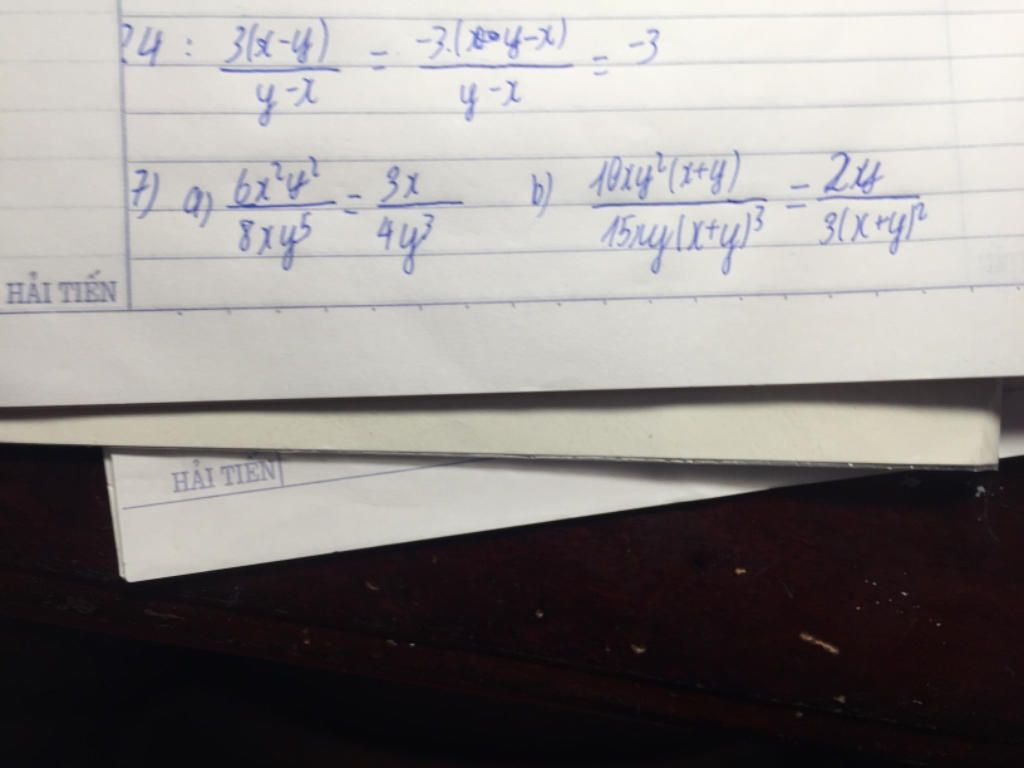 ?4 : 3(x-y)/(y-x) = -3.(y-x)/(y-x) = -3
7) a) 6x²y²/8xy⁵ = 3x/4y³ b) 10xy²(x+y)/15xy(x+y)³ = 2xy/3(x+y)²
HẢI TIẾN
HẢI TIẾN